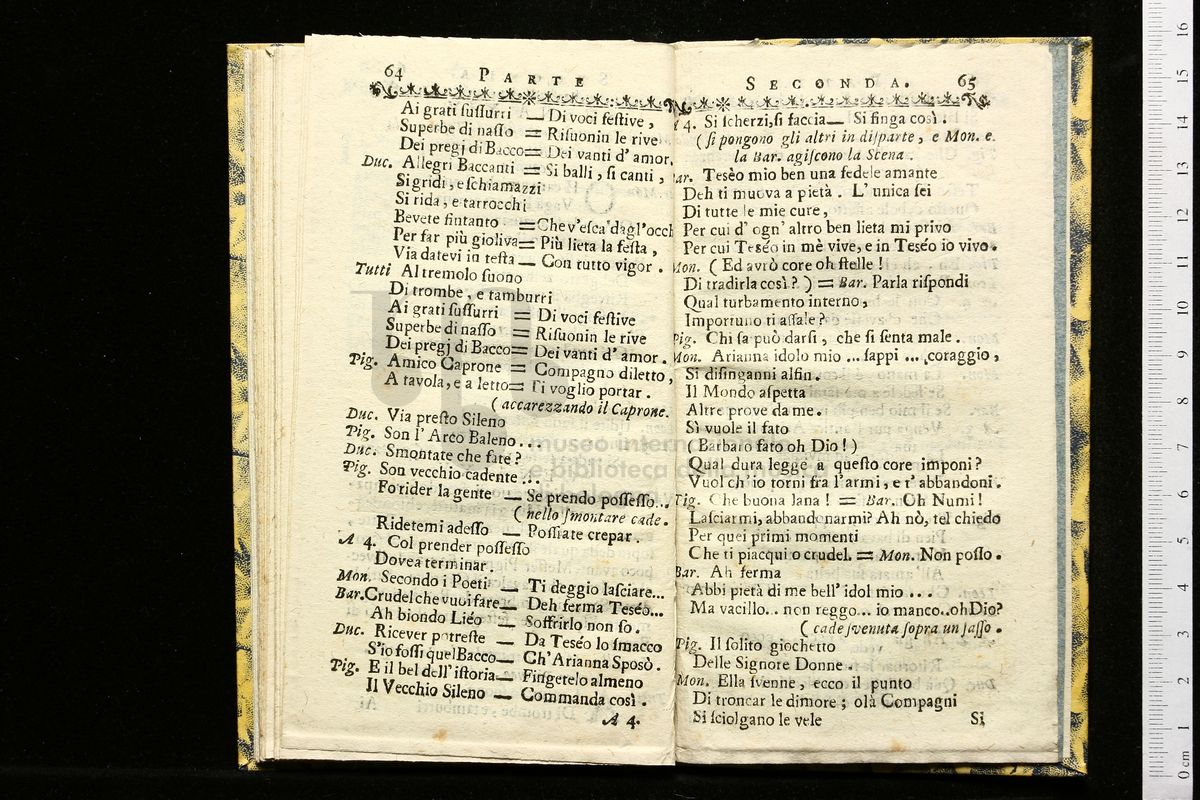 64 PARTE
Ai grati suſſurri — Di voci feſtive,
Superbe di naſſo = Riſuonin le rive
Dei pregj di Bacco= Dei vanti d' amor,
Duc. Allegri Baccanti = Si balli, ſi canti,
Si gridi, e ſchiamazzi
Si rida, e tarrocchi
Bevete ſintanto =Che v'eſca dagl'occh
Per far più gioliva= Più lieta la feſta,
Via datevi in teſta — Con tutto vigor.
Tutti Al tremolo ſuono
Di trombe, e tamburri
Ai grati ſuſſurri = Di voci feſtive
Superbe di naſſo = Riſuonin le rive
Dei pregj di Bacco= Dei vanti d' amor.
Pig. Amico Caprone = Compagno diletto,
A tavola, e a letto= Ti voglio portar.
( accarezzando il Caprone.
Duc. Via preſto Sileno
Pig. Son l' Arco Baleno...
Duc. Smontate che fate?
Pig. Son vecchio cadente...
Fo rider la gente — Se prendo poſſeſſo...
( nello ſmontare cade.
Ridetemi adeſſo — Poſſiate crepar.
A 4. Col prender poſſeſſo
Dovea terminar.
Mon. Secondo i Poeti — Ti deggio laſciare...
Bar.Crudel che vuoi fare— Deh ferma Teséo...
Ah biondo Liéo — Soffrirlo non ſo.
Duc. Ricever potreſte — Da Teséo lo ſmacco
S'io foſſi quel Bacco— Ch'Arianna Sposò.
Pig. E il bel dell' iſtoria— Fingetelo almeno
Il Vecchio Sileno — Commanda così.
A 4.
SECONDA. 65
4. Si ſcherzi,ſi faccia— Si finga così.
( ſi pongono gli altri in diſparte, e Mon. e.
la Bar. agiſcono la Scena.
ar. Tesèo mio ben una fedele amante
Deh ti muova a pietà. L' unica ſei
Di tutte le mie cure,
Per cui d' ogn' altro ben lieta mi privo
Per cui Teséo in mè vive, e in Teséo io vivo.
Mon. ( Ed avrò core oh ſtelle!
Di tradirla così? ) = Bar. Parla riſpondi
Qual turbamento interno,
Importuno ti aſſale?
Pig. Chi ſa può darſi, che ſi ſenta male.
Mon. Arianna idolo mio ... ſappi ... coraggio,
Si diſinganni alfin.
Il Mondo aſpetta
Altre prove da me.
Sì vuole il fato
( Barbaro fato oh Dio!)
Qual dura legge a queſto core imponi?
Vuol ch' io torni fra l' armi, e t' abbandoni.
Pig. Che buona lana! = Bar. Oh Numi!
Laſciarmi, abbandonarmi? Ah nò, tel chiedo
Per quei primi momenti
Che ti piacqui o crudel. = Mon. Non poſſo.
Bar. Ah ferma
Abbi pietà di me bell' idol mio ...
Ma vacillo... non reggo... io manco..oh Dio?
( cade ſvenuta ſopra un ſaſſo.
Pig. Il ſolito giochetto
Delle Signore Donne.
Mon. Ella ſvenne, ecco il punto
Di troncar le dimore; olà Compagni
Si ſciolgano le vele
Si